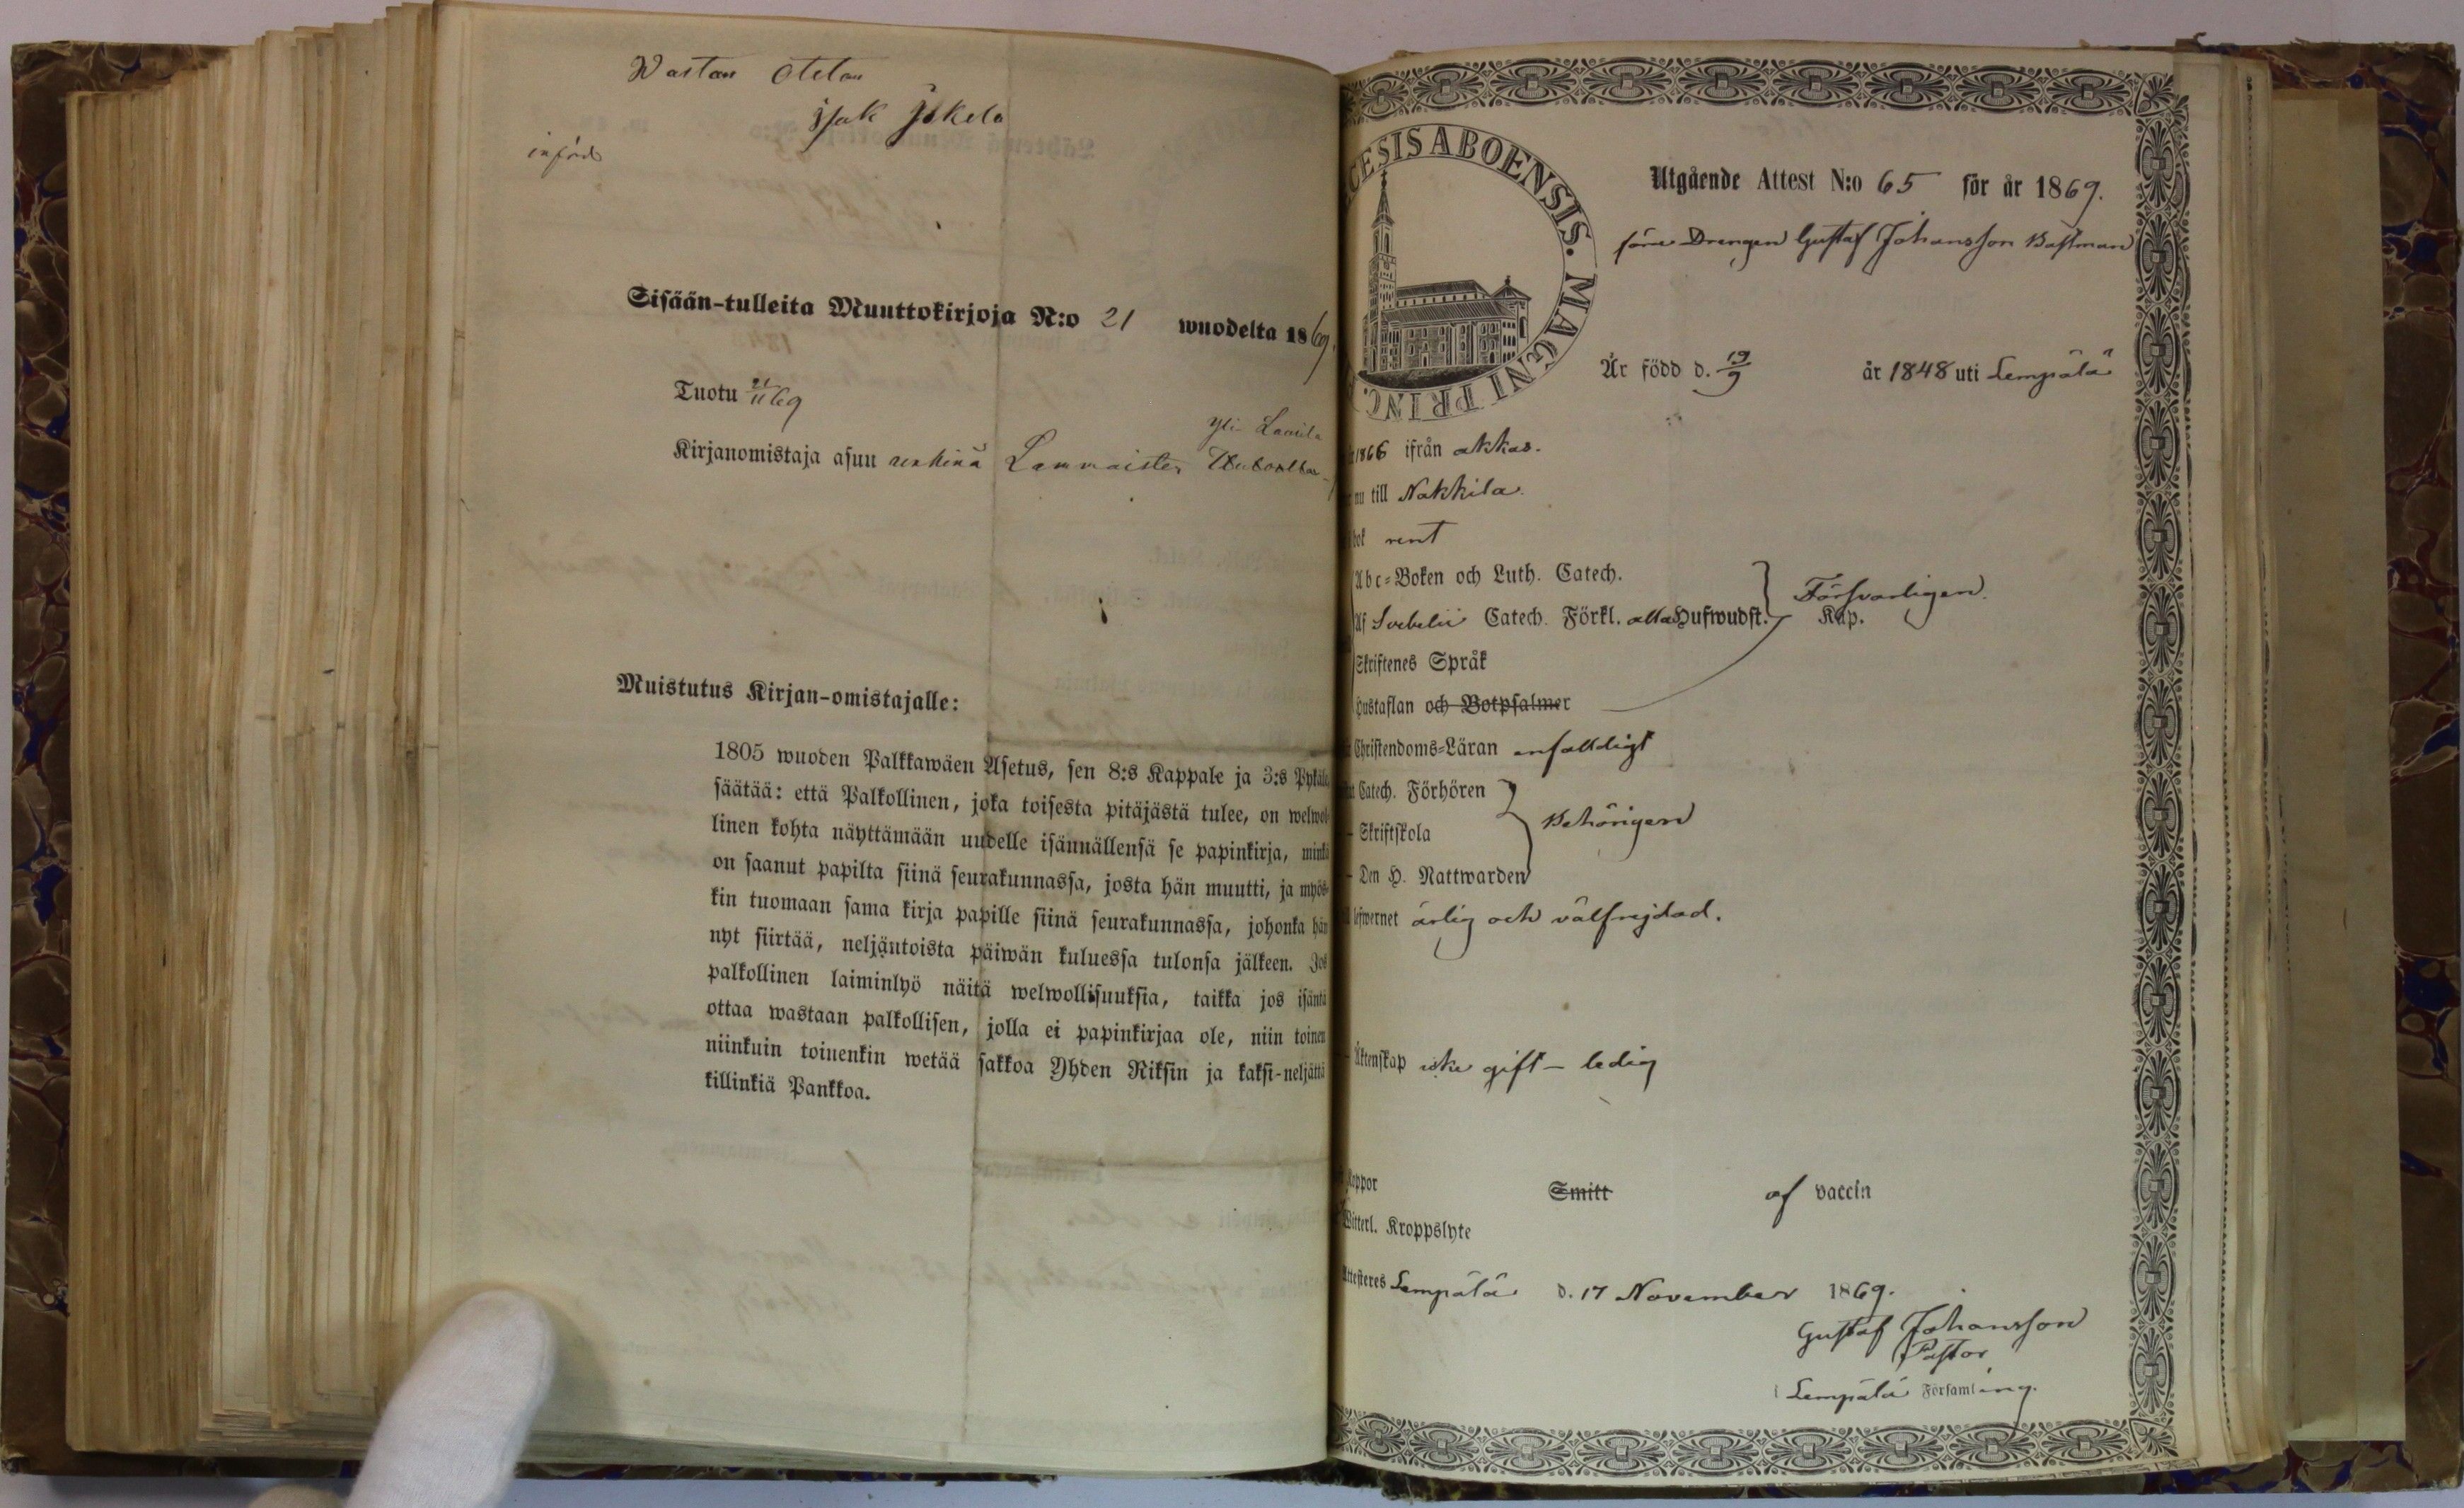 Wastan otetan
Isak Jskela
införd
Sisään-tulleita Muuttokirjoja N:o 21 wuodelta 1869.
Tuotu 21/11 69
Yli Laurila
Kirjanomistaja asuu renkinä Lammaisten
Muistutus Kirjan-omistajalle:
1805 wuoden Palkkawäen Asetus, sen 8:s Kappale ja 3:s Pykälä
säätää: että Palkollinen, joka toisesta pitäjästä tulee, on welwol-
linen kohta näyttämään uudelle isännällensä se papinkirja, minkä
on saanut papilta siinä seurakunnassa, josta hän muutti, ja myös-
kin tuomaan sama kirja papille siinä seurakunnassa, johonka hän
nyt siirtää, neljäntoista päiwän kuluessa tulonsa jälkeen. Jos
palkollinen laiminlyö näitä welwollisuuksia, taikka jos isäntä
ottaa wastaan palkollisen, jolla ei papinkirjaa ole, niin toinen
niinkuin toinenkin wetää sakkoa Yhden Riksin ja kaksi-neljättä
killinkiä Pankkoa.
CESIS ABOENSIS. MAGNI PRINC
Utgående Attest N:o 65 för år 1869.
före Drengen Gustaf Johansson Bastman
Är född d. 19/9 år 1848 uti Lempälä
1866 ifrån Akkas.
nu till Nakkila.
bok rent
Abc-Boken och Luth. Catech.
Försvarligen.
Af Svebelii Catech. Förkl. alla Hufwudst. Kap.
Skriftenes Språk
Hustaflan och Botpsalmer
Christendoms-Läran enfaldigt
Catech. Förhören
Skriftskola
Behörigen
Den H. Nattwarden
lefwernet ärlig och välfrejdad.
Äktenskap icke gift - ledig
Koppor Smitt af vaccin
Witterl. Kroppslyte
Attesteres Lempälä d. 17 November 1869.
Gustaf Johansson
Pastor
i Lempälä Församling.